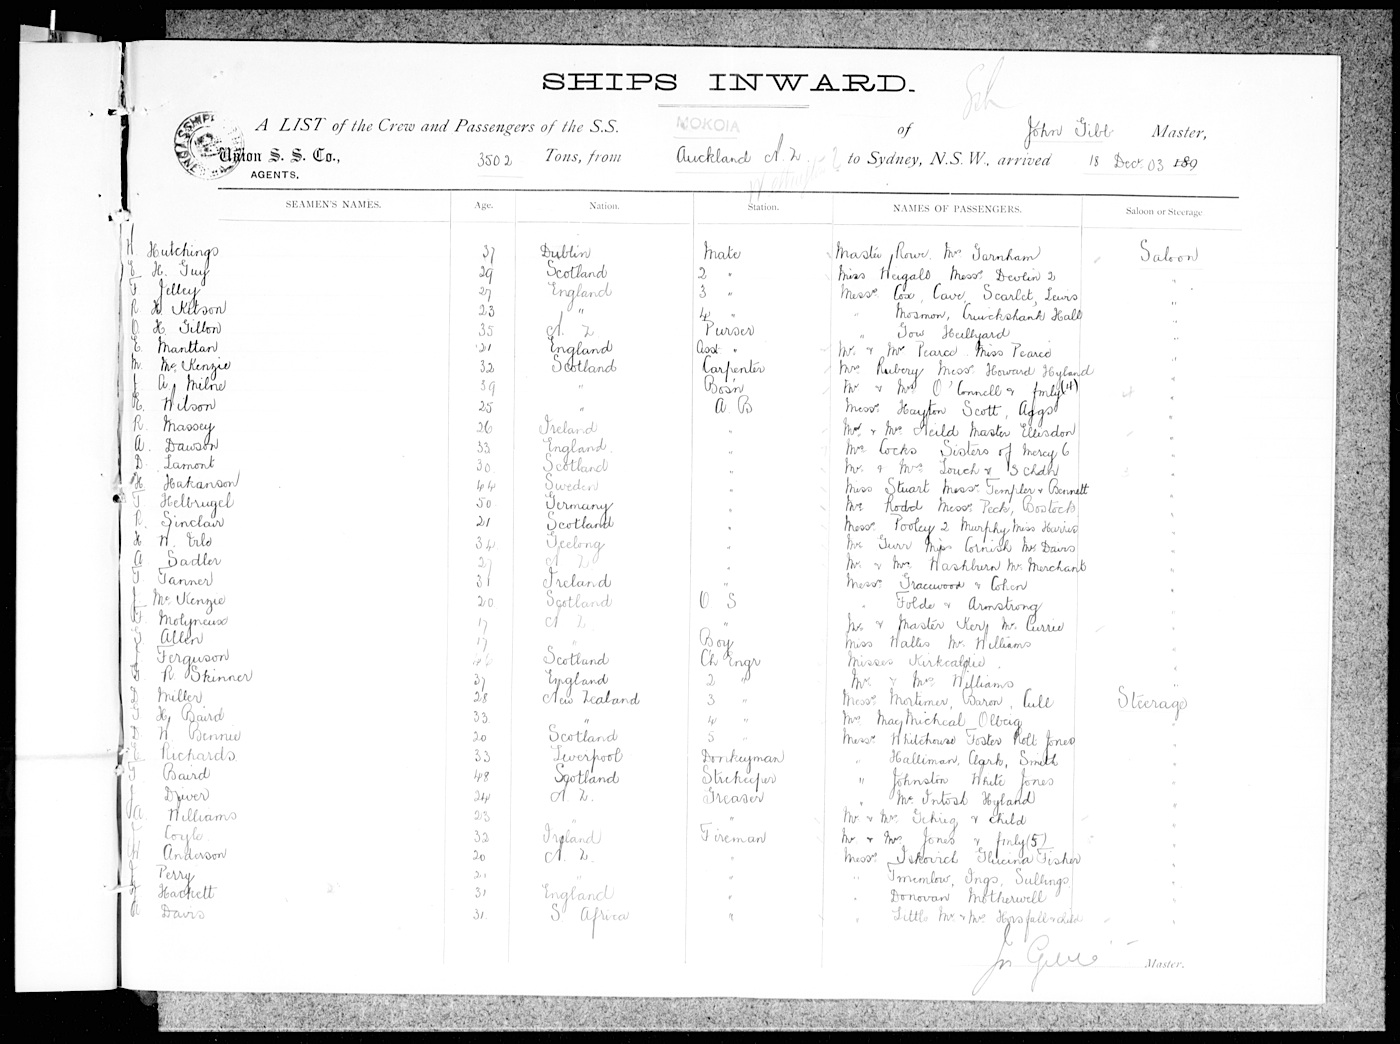 SHIPS INWARD.
A LIST of the Crew and Passengers of the S.S. MOKOIA of John Gibb Master,
Union S. S. Co., 3502 Tons, from Auckland N. Z to Sydney, N.S.W., arrived 18 Dec. 03 189
AGENTS.
SEAMEN'S NAMES. Age. Nation. Station. NAMES OF PASSENGERS. Saloon or Steerage
H Hutchings 37 Dublin Mate Master Rowe. Mrs Garnham Saloon
E H. Guy 29 Scotland 2 " Miss Heigall Messrs Devlin 2 "
F Jelley 27 England 3 " Messrs Cox, Cave, Scarlet, Lewis "
R H. Kitson 23 " 4 " " Mosmon, Cruickshank Hall "
O H. Gillon 35 N. Z Purser " Gow Hellyard "
E Manttan 21 England Asst " Mr. & Mrs Pearce Miss Pearce "
M. McKenzie 32 Scotland Carpenter Mrs Rubery Messrs Howard Hyland "
J A, Milne 39 " Bos'n Mr & Mrs O'Connell & fmly (4) "
R. Wilson 25 " A. B Messrs Hayton Scott, Aggs "
R. Massey 26 Ireland " Mr & Mrs Neild Master Ellisdon "
A. Dawson 33 England. " Mrs Cocks Sisters of Mercy 6 "
D. Lamont 30 Scotland " Mr. & Mrs Louch & 5 chdn "
H. Hakanson 44 Sweden " Miss Stuart Messrs Templer & Bennett "
F Helbrugel 50 Germany " Mr Rodd Messrs Peck, Bostock "
R. Sinclair 21 Scotland " Messrs Pooley 2 Murphy Miss Harris "
H W. 34 Geelong " Mr Gurr Miss Cornish Mr Davis "
A Sadler 27 N Z " Mr & Mrs Washburn Mr Merchant "
T. Tanner 31 Ireland " Messrs Gracewood & Cohen "
J McKenzie 20 Scotland O S " Folde & Armstrong "
F. Molyneux 17 N Z " Mr. & Master Kery Mr. Currie "
Allen 17 " Boy Miss Wallis Mr Williams "
Ferguson 46 Scotland Ch Engr Misses Kirkcaldie. "
R Skinner 37 England 2 " Mr & Mrs Williams "
D Miller 28 New Zealand 3 " Messrs Mortimer, Baron, Cull Steerage
H, Baird 33 " 4 " Mrs MacMicheal Olberg "
D W. Bennie 20 Scotland 5 " Messrs Whitehouse Foster Holt Jones "
E Richards 33 Liverpool Donkeyman " Halliman, Clark, Smith "
T. Baird 48 Scotland Strekeeper " Johnston White Jones "
J Driver 24 N. Z. Greaser " McIntosh Hyland "
A. Williams 23 " " Mr & Mrs & child "
T Coyle 32 Ireland Fireman Mr. & Mrs Jones & fmly (5) "
W Anderson 20 N. Z. " Messrs Iskovich Glucina Fisher "
J Perry 21 " " " Ings, Sullings "
J Hackett 31 England " " Donovan Motherwell "
A Davis 31 S. Africa " " Little Mr & Mrs Horsfall & child "
Jn Gibb Master.